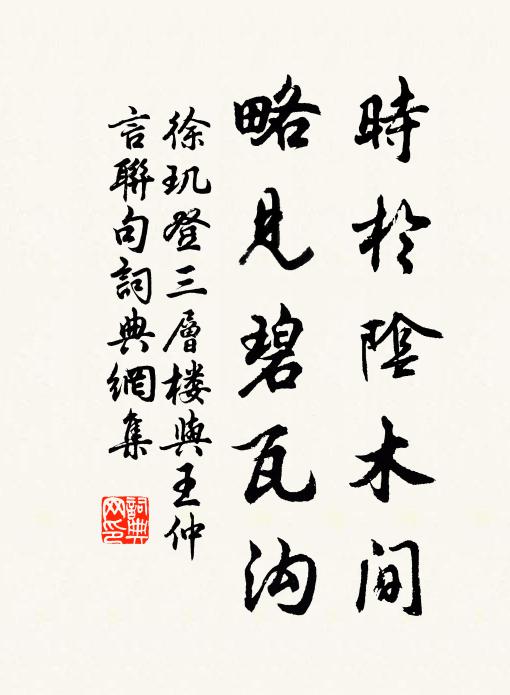 時於陰木间
略见碧瓦沟
徐玑登三層楼與王仲
言聯句詞典網集
詞典
网印